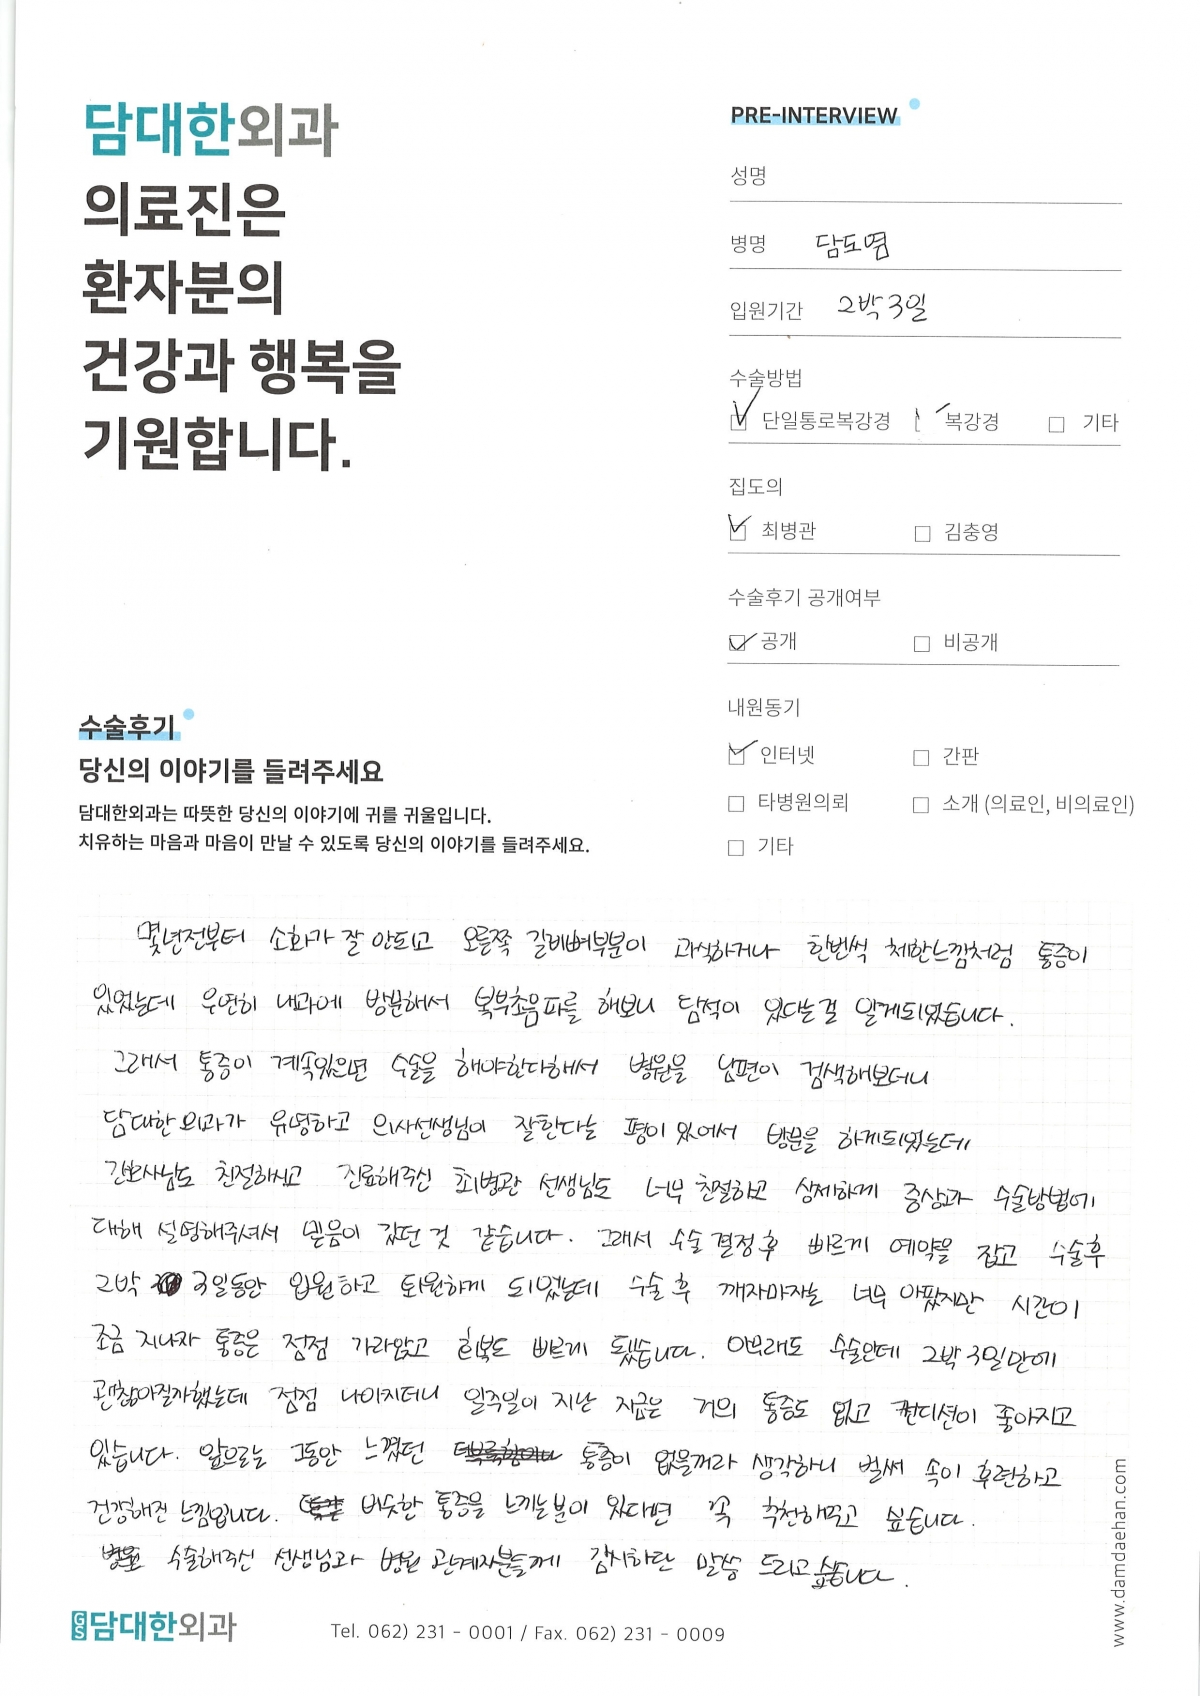 담대한외과
의료진은
환자분의
건강과 행복을
기원합니다.
PRE-INTERVIEW
성명
병명 담도염
입원기간 2박 3일
수술방법
단일통로복강경 복강경 기타
집도의
최병관 김충영
수술후기 공개여부
공개 비공개
내원동기
인터넷 간판
타병원의뢰 소개 (의료인, 비의료인)
기타
수술후기
당신의 이야기를 들려주세요
담대한외과는 따뜻한 당신의 이야기에 귀를 귀울입니다.
치유하는 마음과 마음이 만날 수 있도록 당신의 이야기를 들려주세요.
몇년전부터 소화가 잘 안되고 오른쪽 갈비뼈부분이 과식하거나 한번씩 체한느낌처럼 통증이
있었는데 우연히 내과에 방분해서 복부초음파를 해보니 담석이 있다는걸 알게되었습니다.
그래서 통증이 계속있으면 수술을 해야한다해서 병원을 남편이 검색해보더니
담대한외과가 유명하고 의사선생님이 잘한다는 평이 있어서 방문을 하게되었는데
간호사님도 친절하시고 진료해주신 최병관 선생님도 너무 친절하고 상세하게 증상과 수술방법에
대해 설명해주셔서 믿음이 갔던 것 같습니다. 그래서 수술 결정 후 빠르게 예약을 잡고 수술후
2박 3일동안 입원하고 퇴원하게 되었는데 수술 후 깨자마자는 너무 아팠지만 시간이
조금 지나자 통증은 점점 가라앉고 회복도 빠르게 됐습니다. 아무래도 수술인데 2박 3일만에
괜찮아질까했는데 점점 나아지더니 일주일이 지난 지금은 거의 통증도 없고 컨디션이 좋아지고
있습니다. 앞으로는 그동안 느꼈던 통증이 없을꺼라 생각하니 벌써 속이 후련하고
건강해진 느낌입니다. 비슷한 통증을 느끼는분이 있다면 꼭 추천해주고 싶습니다.
수술해주신 선생님과 병원 관계자분들께 감사하단 말씀 드리고 싶습니다.
GS 담대한외과
Tel. 062) 231 - 0001 / Fax. 062) 231 - 0009
www.damdaehan.com